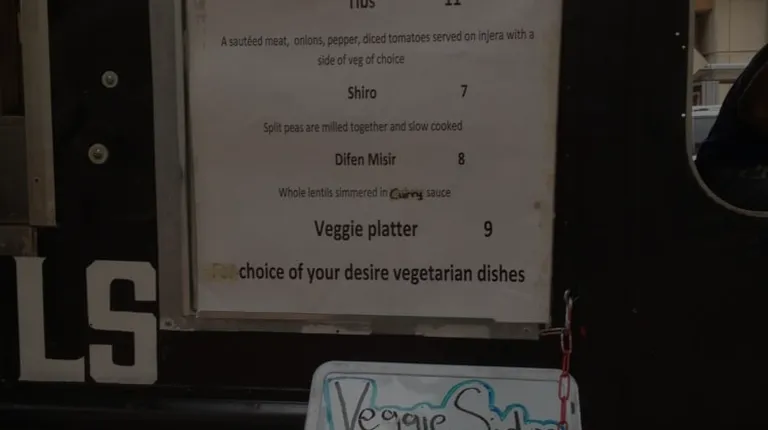 Tibs 11
A sautéed meat, onions, pepper, diced tomatoes served on injera with a
side of veg of choice
Shiro 7
Split peas are milled together and slow cooked
Difen Misir 8
Whole lentils simmered in Curry sauce
Veggie platter 9
choice of your desire vegetarian dishes
LS
Veggie